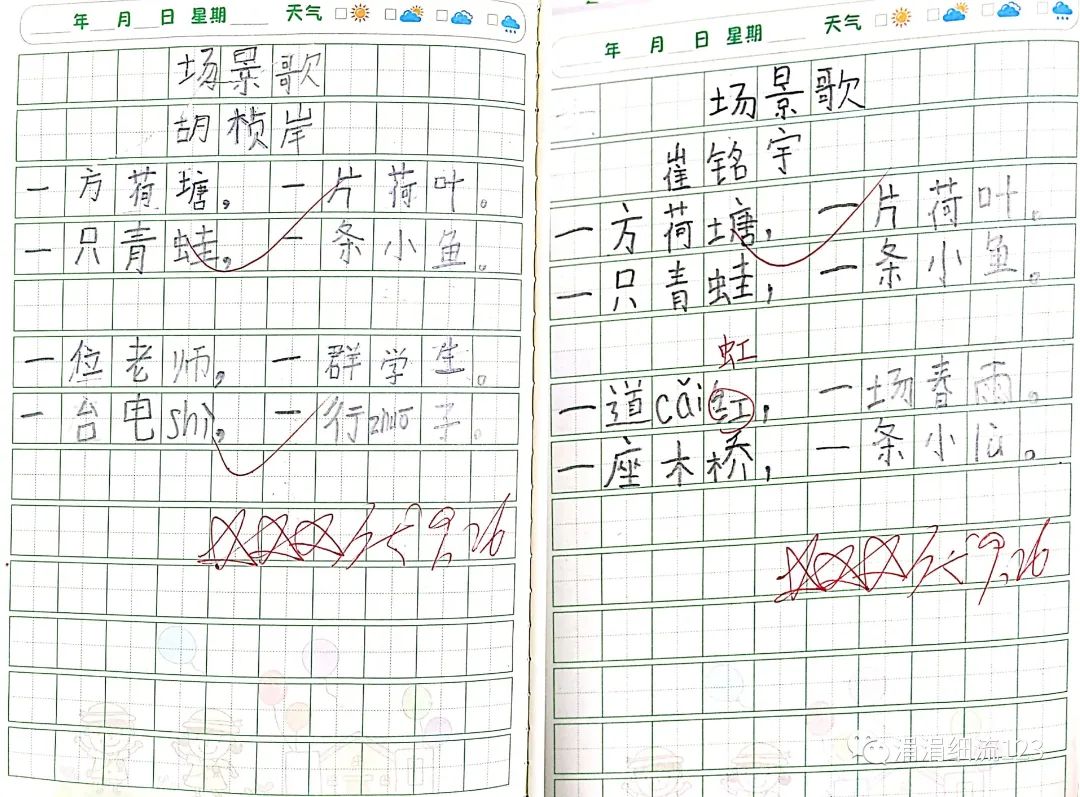 年 月 日 星期 天气
场景歌
胡桢岸
一方荷塘，一片荷叶。
一只青蛙，一条小鱼。
一位老师，一群学生。
一台电shì，一行zhuō子。
9.26
年 月 日 星期 天气
场景歌
崔铭宇
一方荷塘，一片荷叶。
一只青蛙，一条小鱼。
虹
一道cǎi红，一场春雨。
一座木桥，一条小lǘ。
9.26
涓涓细流123